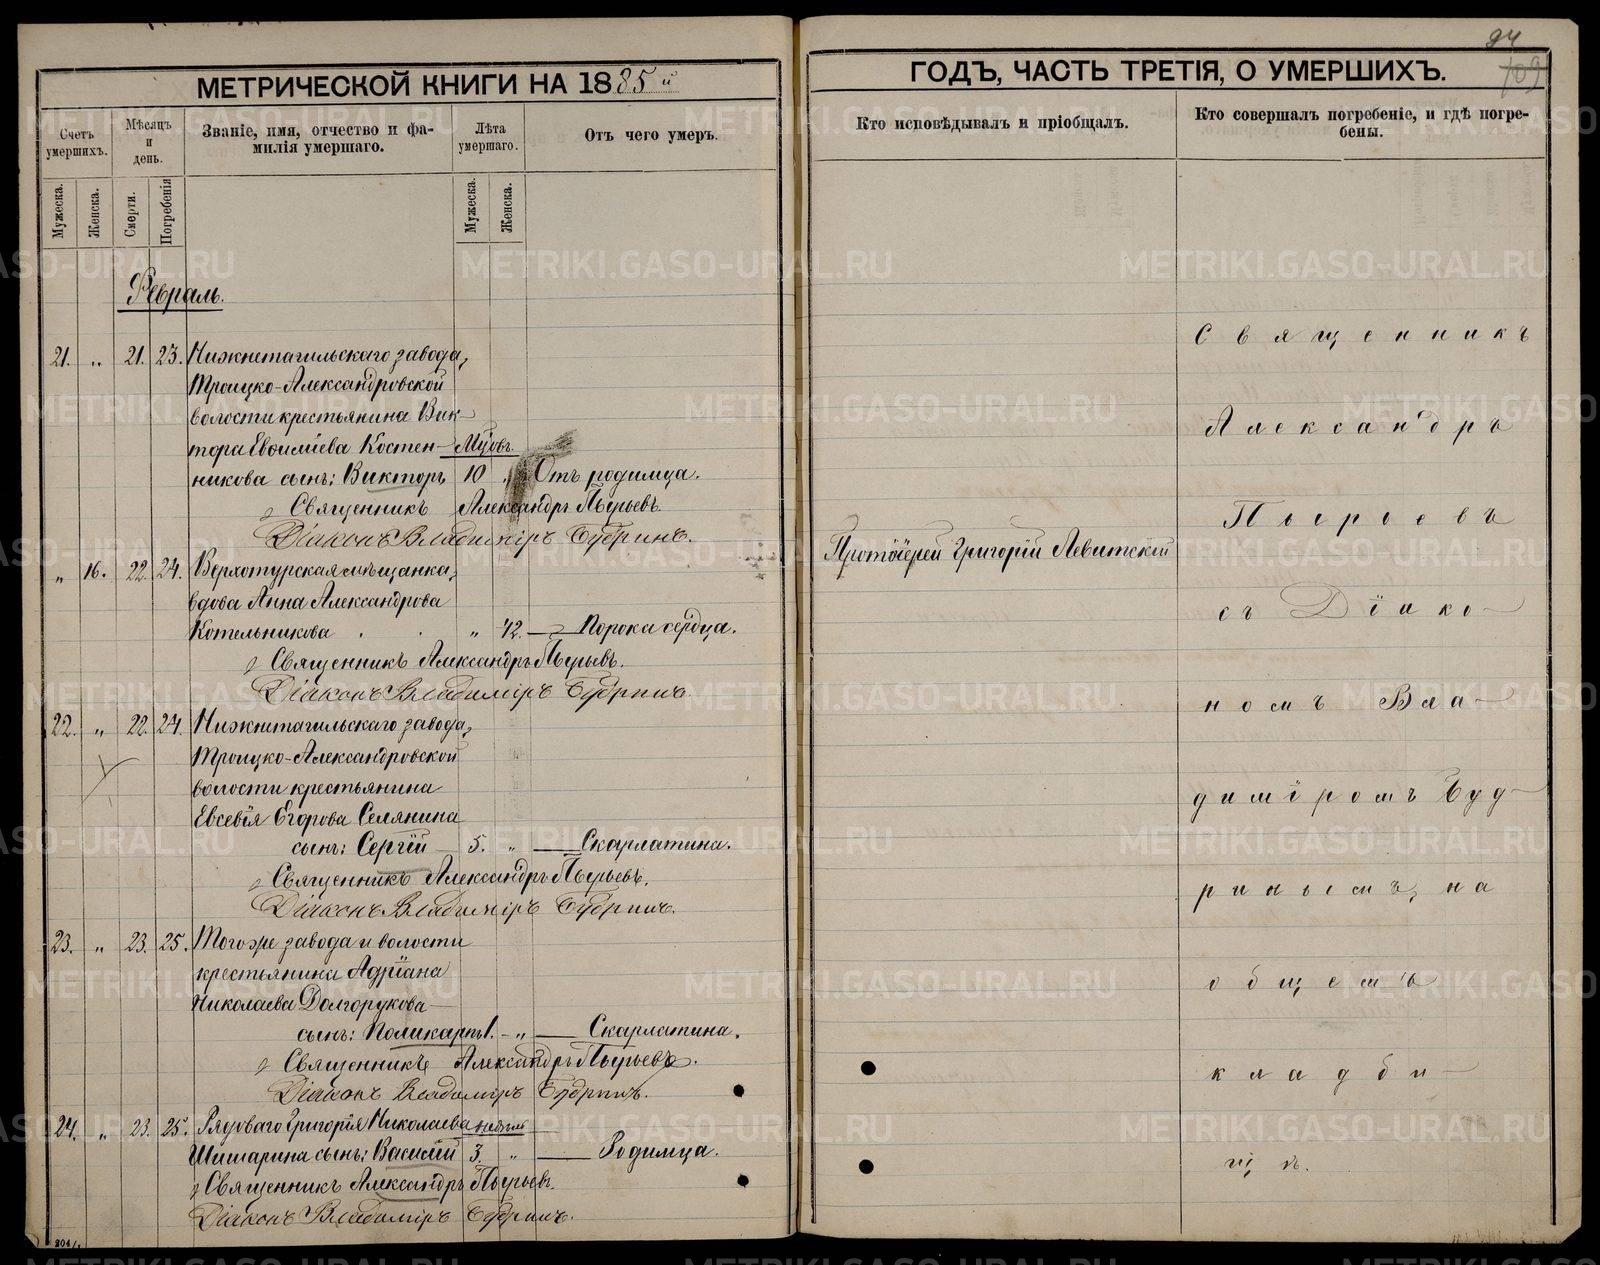 94
109
МЕТРИЧЕСКОЙ КНИГИ НА 1885й
ГОДЪ, ЧАСТЬ ТРЕТІЯ, О УМЕРШИХЪ.
Счетъ умершихъ.
Мѣсяцъ и день.
Званіе, имя, отчество и фамилія умершаго.
Лѣта умершаго.
Отъ чего умеръ.
Кто исповѣдывалъ и пріобщалъ.
Кто совершалъ погребеніе, и гдѣ погребены.
Мужеска.
Женска.
Смерти.
Погребенія
Мужеска.
Женска.
Февраль.
21. „ 21. 23. Нижнетагильскаго завода,
Троицко-Александровской
волости крестьянина Вик-
тора Евфиміева Костен- Мѣсяцевъ.
никова сынъ: Викторъ 10 „ Отъ родимца.
Священникъ Александръ Пырьевъ.
Діаконъ Владиміръ Будринъ.
„ 16. 22. 24. Верхотурская мѣщанка,
вдова Анна Александрова
Котельникова „ 42. — Порока сердца.
Священникъ Александръ Пырьевъ.
Діаконъ Владиміръ Будринъ.
22. „ 22. 24. Нижнетагильскаго завода,
Троицко-Александровской
волости крестьянина
Евсевія Егорова Селянина
сынъ: Сергій 5. „ — Скарлатина.
Священникъ Александръ Пырьевъ.
Діаконъ Владиміръ Будринъ.
23. „ 23. 25. Тогоже завода и волости
крестьянина Адріана
Николаева Долгорукова
сынъ: Поликарпъ 1. „ — Скарлатина.
Священникъ Александръ Пырьевъ.
Діаконъ Владиміръ Будринъ.
24. „ 23. 25. Рядоваго Григорія Николаева недѣль
Шишарина сынъ: Василій 3. „ — Родимца.
Священникъ Александръ Пырьевъ.
Діаконъ Владиміръ Будринъ.
204/1
Протоіерей Григорій Левитскій
Священникъ
Александръ
Пырьевъ
съ Діако-
номъ Вла-
диміромъ Буд-
ринымъ, на
общемъ
кладби-
щѣ.
METRIKI.GASO-URAL.RU